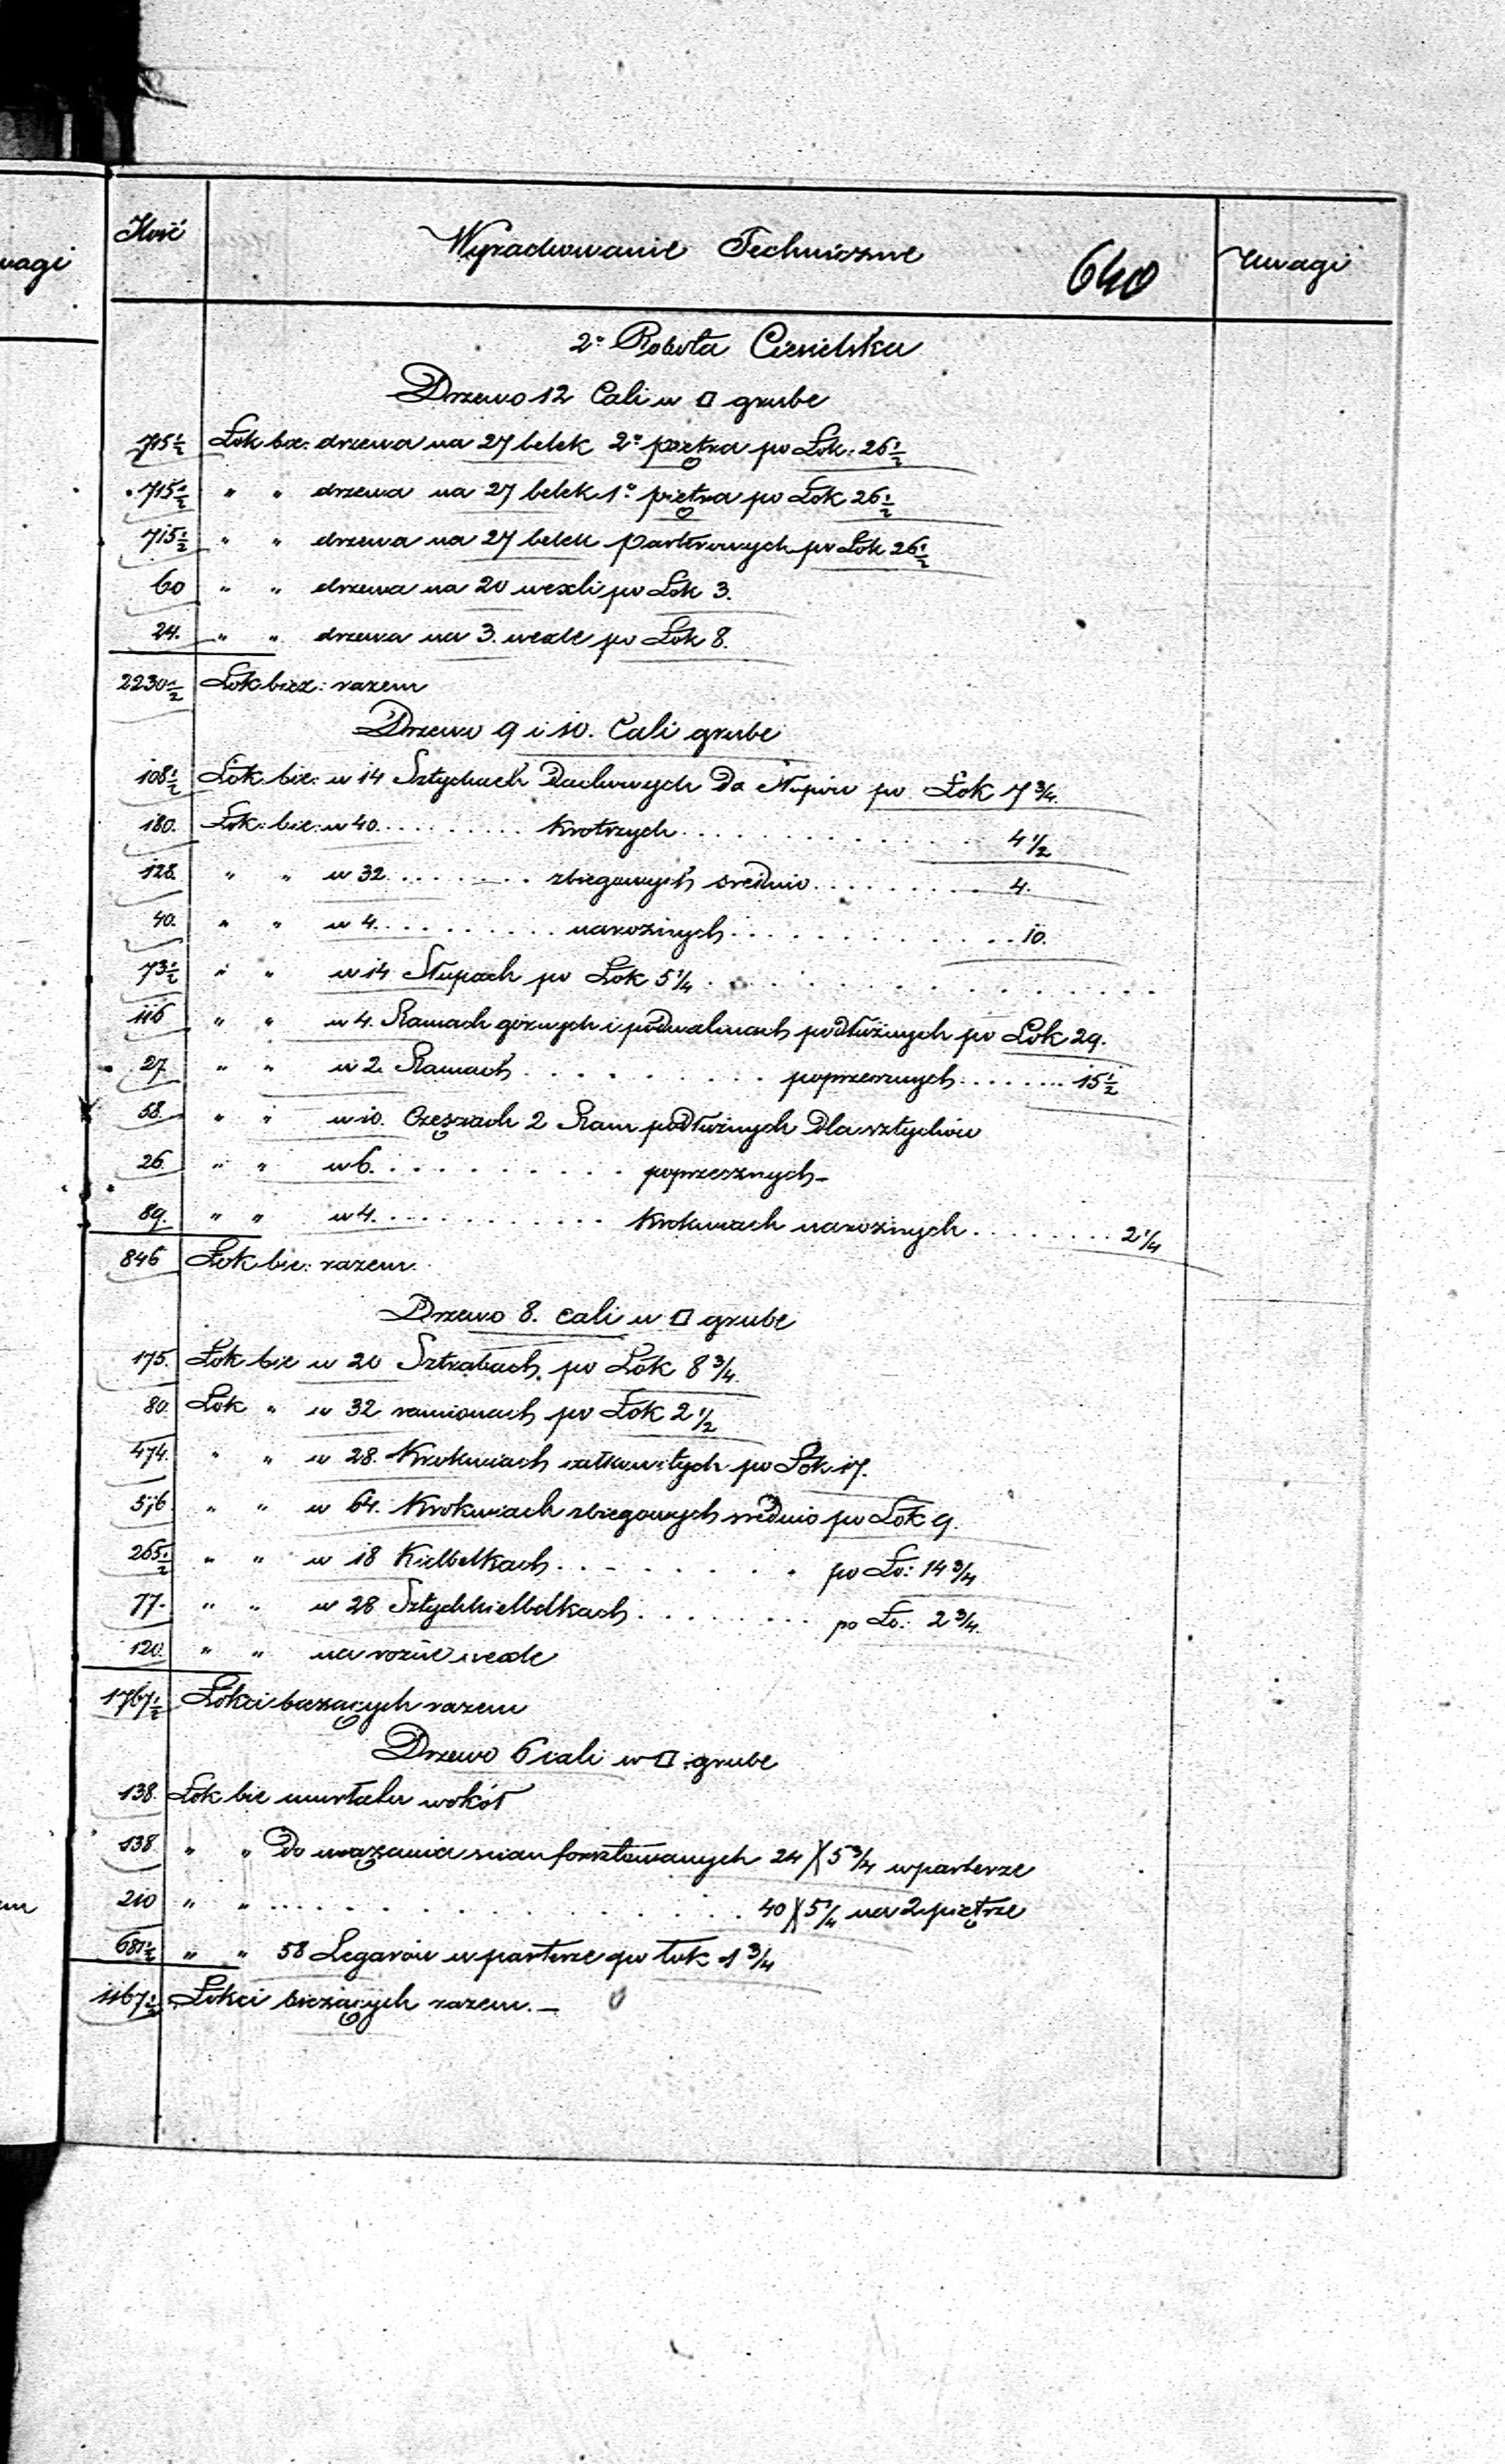 uwagi
Ilość Wyrachowanie Techniczne 640 Uwagi
2º Robota Ciesielska
Drzewo 12 Cali w □ grube
715½ Łok bie: drzewa na 27 belek 2º piętra po Łok: 26½
715½ " " drzewa na 27 belek 1º piętra po Łok 26½
715½ " " drzewa na 27 belek parterowych po Łok 26½
60 " " drzewa na 20 wexli po Łok 3.
24. " " drzewa na 3. wexle po Łok 8.
2230½ Łok bież: razem
Drzewo 9 i 10. Cali grube
108½ Łok bie: w 14 Sztychach Dachowych Do Słupów po Łok 7¾.
180. Łok: bie: w 40. . . . . . . . . Krotszych . . . . . . . . . . . . 4½
128. " " w 32 . . . . . . . zbiegowych srednio . . . . . . . . 4.
40. " " w 4. . . . . . . . . . narożnych . . . . . . . . . . . . 10.
73½ " " w 14 Słupach po Łok 5¼ . . . . . . . . . . . . . . .
116 " " w 4. Ramach górnych i podwalinach podłużnych po Łok 29.
27. " " w 2. Ramach . . . . . . . . . poprzecznych . . . . . . . 15½
58. " " w 10. Częsciach 2 Ram podłużnych Dla sztychów
26. " " w 6. . . . . . . . . . . poprzecznych -
89. " " w 4. . . . . . . . . . . Krokwiach narożnych . . . . . . . . 2¼
846 Łok bie: razem.
Drzewo 8. cali w □ grube
175. Łok bie w 20 Sztrabach, po Łok 8¾.
80. Łok " w 32 ramionach po Łok 2½
474. " " w 28. Krokwiach całkowitych po Łok 17.
576. " " w 64. Krokwiach zbiegowych srednio po Łok 9.
265½ " " w 18 Kielbelkach . . . . . . . . po Ło: 14¾
77. " " w 28 Sztychkielbelkach . . . . . . . . po Ło: 2¾.
120. " " na rożne wexle
1767½ Łokci bieżących razem
Drzewo 6 cali w □ grube
138. Łok bie murłatu wokół
138. " " Do wiązania scian forsztowanych 24 )( 5¾ w parterze
210 " " . . . . . . . . . . . . . . . . 40 )( 5¼ na 2. piętrze
681½ " " 58 Legarów w parterze po łok 1¾
1167½ Łokci bieżących razem. -